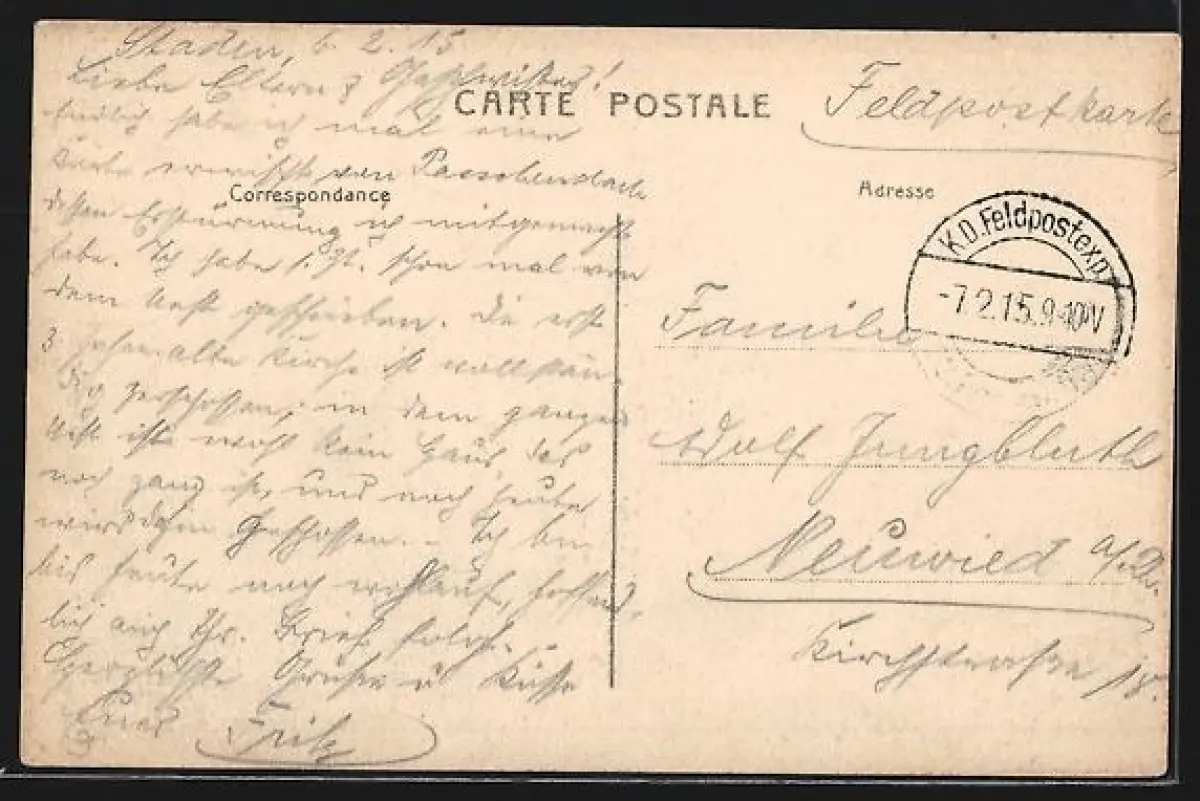 Staden, 6.2.15
Liebe Eltern & Geschwister!
CARTE POSTALE
Feldpostkarte
Endlich habe ich mal eine
Karte erwischt von Passchendaele
Correspondance
Adresse
dessen Erstürmung ich mitgemacht
habe. Ich habe s. Zt. schon mal von
dem Nest geschrieben. Die erst
3 Jahre alte Kirche ist vollstän-
dig zerschossen, in dem ganzen
Nest ist wohl kein Haus, das
noch ganz ist, und noch heute
wird dahin geschossen. - Ich bin
bis heute noch wohlauf, hoffent-
lich auch Ihr. Brief folgt.
Herzlichste Grüße u Küsse
Euer
Fritz
K.D. Feldpostexp.
-7.2.15.9-10 V
Familie
Adolf Jungbluth
Neuwied a/Rh.
Kirchstraße 18.